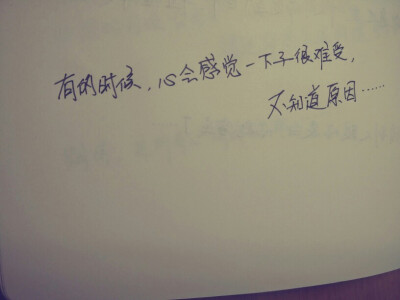 有的时候，心会感觉一下子很难受，
不知道原因……